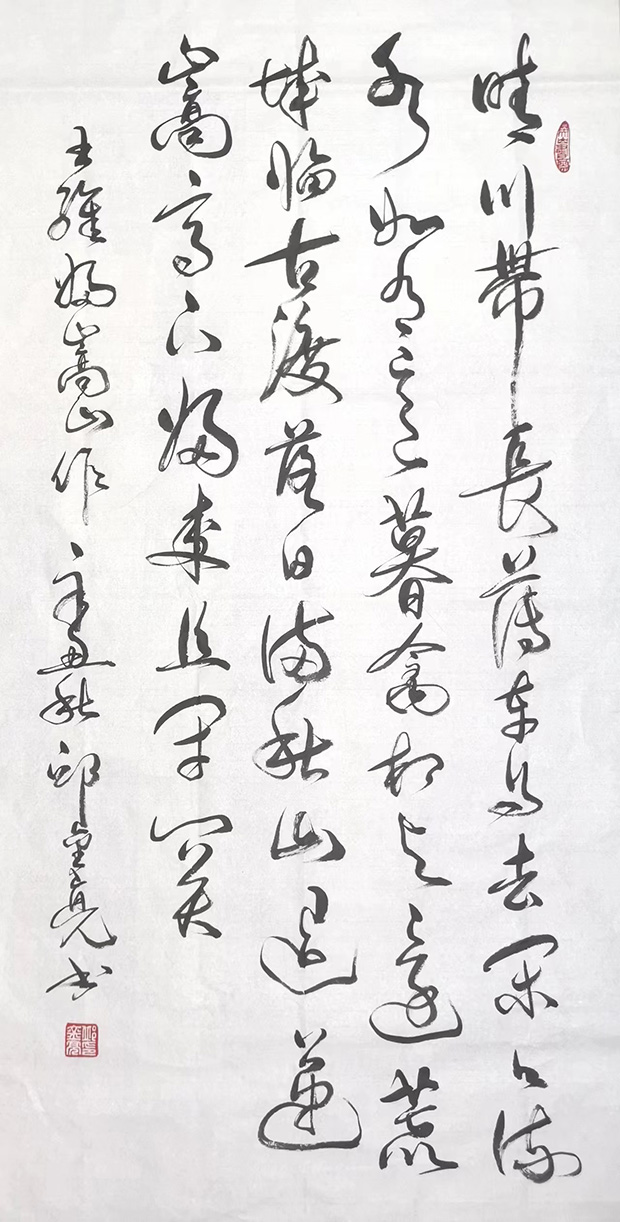 晴川帶長薄車馬去閑〻流
水如有意暮禽相與還荒
城臨古渡落日滿秋山迢遞
嵩高下歸來且閉關
王維歸嵩山作 辛丑秋 邱亮书